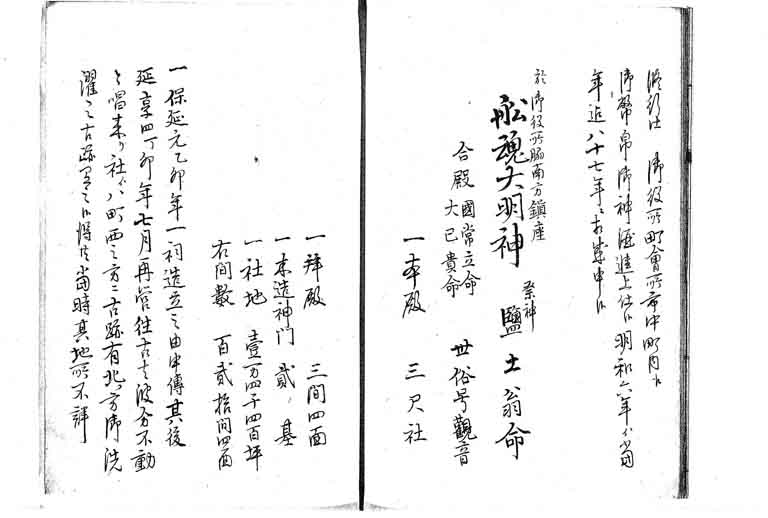 御役所町會所市中町内ゟ
御幣帛御神酒進上仕候明和六年ゟ当
年迄八十七年ニ相成申候
於御役所脇南方鎮座
舩魂大明神 祭神 鹽土翁命
合殿 國常立命 大已貴命 世俗号觀音
一本殿 三尺社
一拜殿 三間四面
一木造神門 貳基
一社地 壹万四千四百坪
右間數 百貳拾間四面
一保延元乙卯年一祠造立之由申傳其後
延享四丁卯年七月再営往古者波分不動
与唱来り社ハ町西之方ニ古跡有北ノ方御洗
濯之古跡
当時其地所不詳